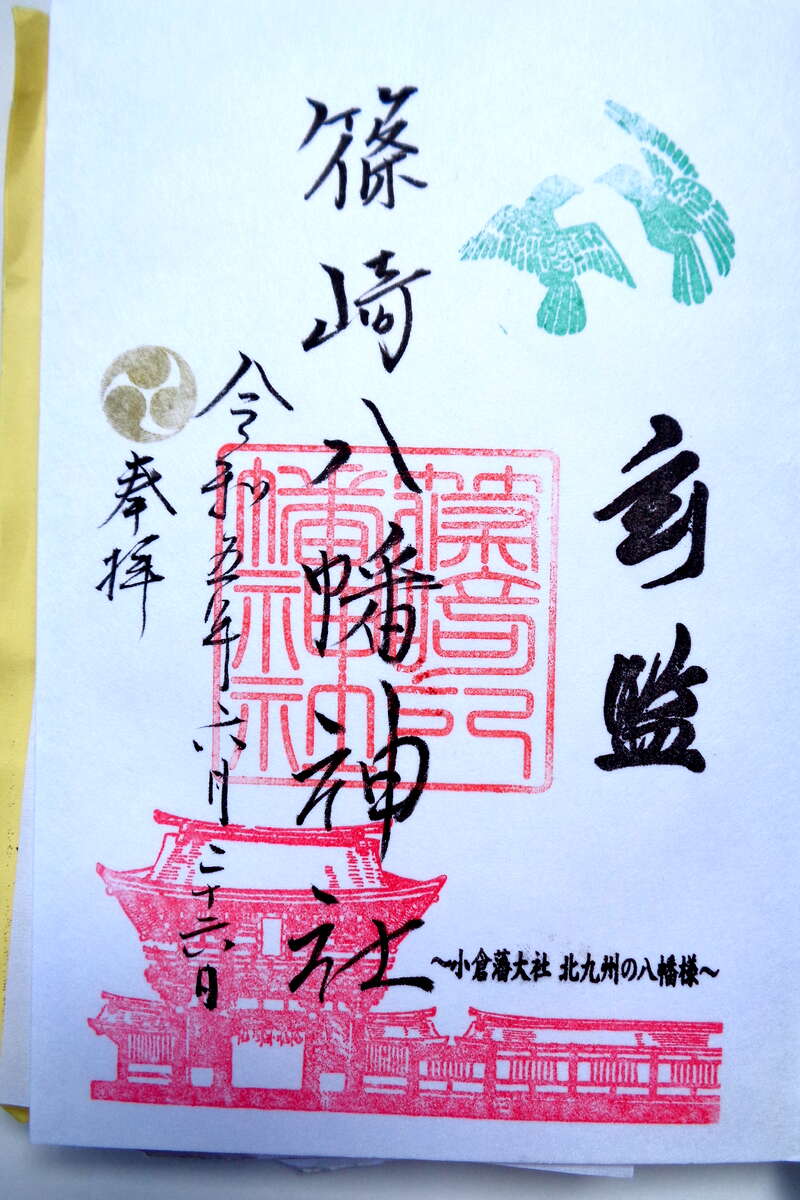 玄監
〜小倉藩大社 北九州の八幡様〜
篠崎八幡神社
令和五年六月二十六日
奉拝